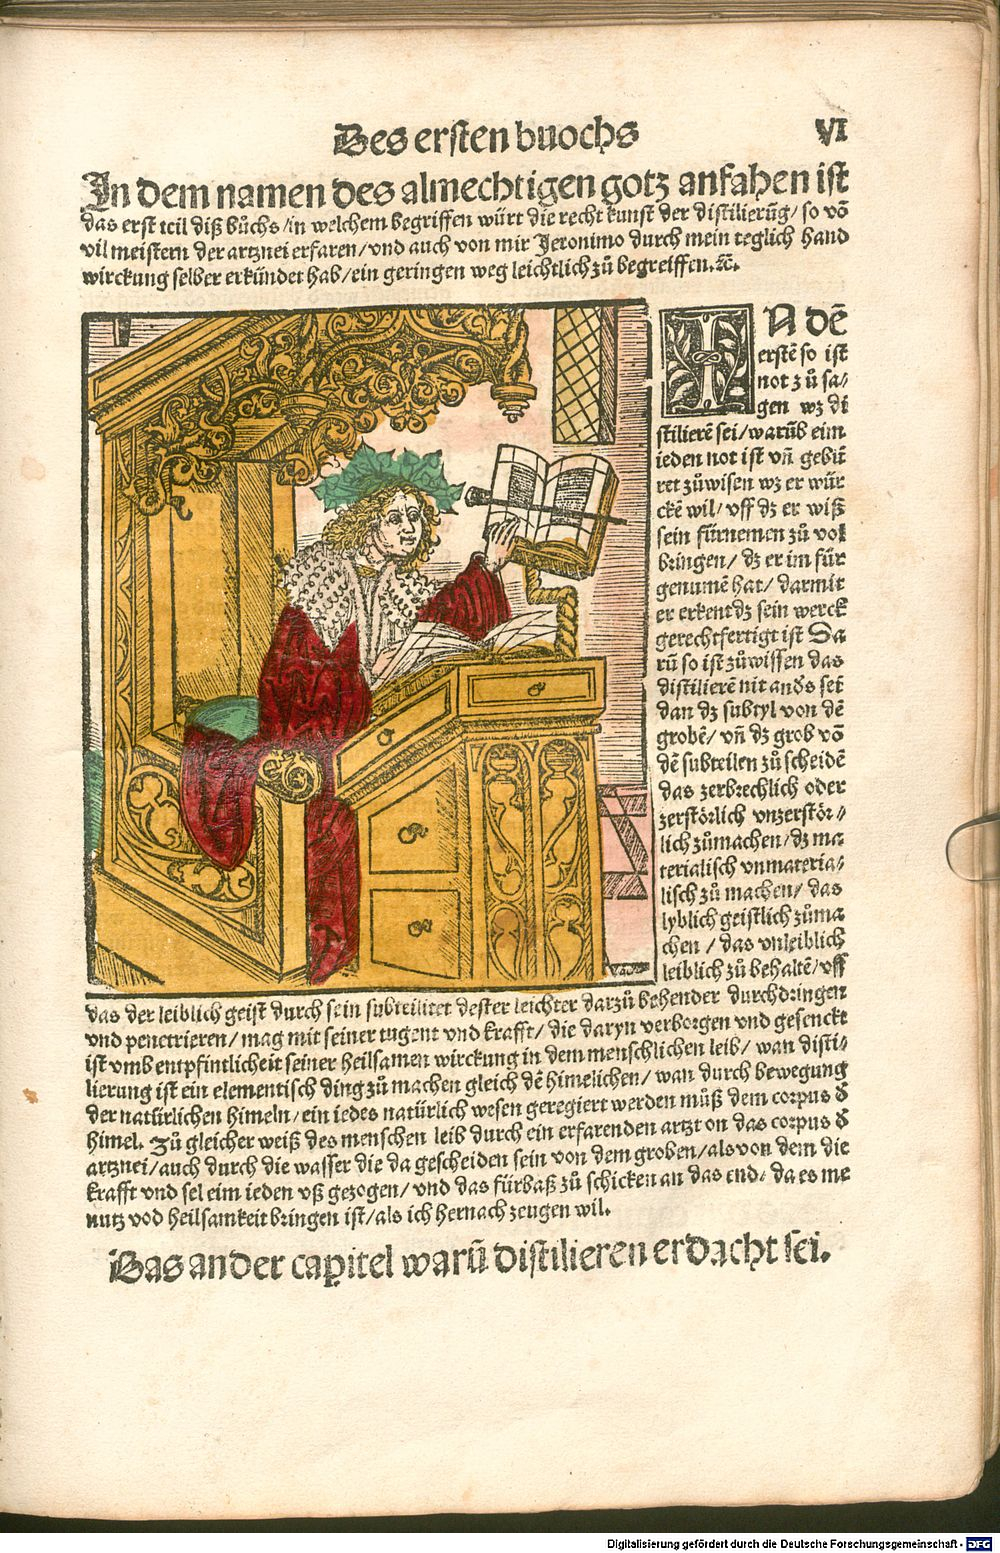 Des ersten buochs
VI
In dem namen des almechtigen gotz anfahen ist
das erst teil diß bůchs/in welchem begriffen würt die recht kunst der distilierūg/ so vō
vil meistern der artznei erfaren/vnd auch von mir Jeronimo durch mein teglich hand
wirckung selber erkündet hab/ein geringen weg leichtlich zů begreiffen.ꝛc̄.
IN dē
erstē so ist
not zů sa/
gen wz di
stilierē sei/warūb eim
ieden not ist vñ gebü
ret zůwisen wz er wür
ckē wil/ vff dz er wiß
sein fürnemen zů vol
bringen/ dz er im für
genumē hat/ darmit
er erkent dz sein werck
gerechtfertigt ist Da
rū so ist zůwissen das
distilierē nit anđs sei
dan dz subtyl von dē
grobē/ vñ dz grob vō
dē subteilen zů scheidē
das zerbrechlich oder
zerstörlich vnzerstör⸗
lich zůmachen/dz ma
terialisch vnmateria⸗
lisch zů machen/ das
lyblich geistlich zůma
chen / das vnleiblich
leiblich zů behaltē/vff
das der leiblich geist durch sein subteilitet dester leichter darzů behender durchdringen
vnd penetrieren/mag mit seiner tugent vnd krafft/ die daryn verborgen vnd gesenckt
ist vmb entpfintlicheit seiner heilsamen wirckung in dem menschlichen leib/ wan disti⸗
lierung ist ein elementisch ding zů machen gleich dē himelichen/wan durch bewegung
der natürlichen himeln/ein iedes natürlich wesen geregiert werden můß dem corpus đ
himel. Zů gleicher weiß des menschen leib durch ein erfarenden artzt on das corpus đ
artznei/auch durch die wasser die da gescheiden sein von dem groben/als von dem die
krafft vnd sel eim ieden vß gezogen/ vnd das fürbaß zů schicken an das end⸗ da es me
nutz vnd heilsamkeit bringen ist/als ich hernach zeugen wil.
Das ander capitel warū distilieren erdacht sei.
Digitalisierung gefördert durch die Deutsche Forschungsgemeinschaft - DFG